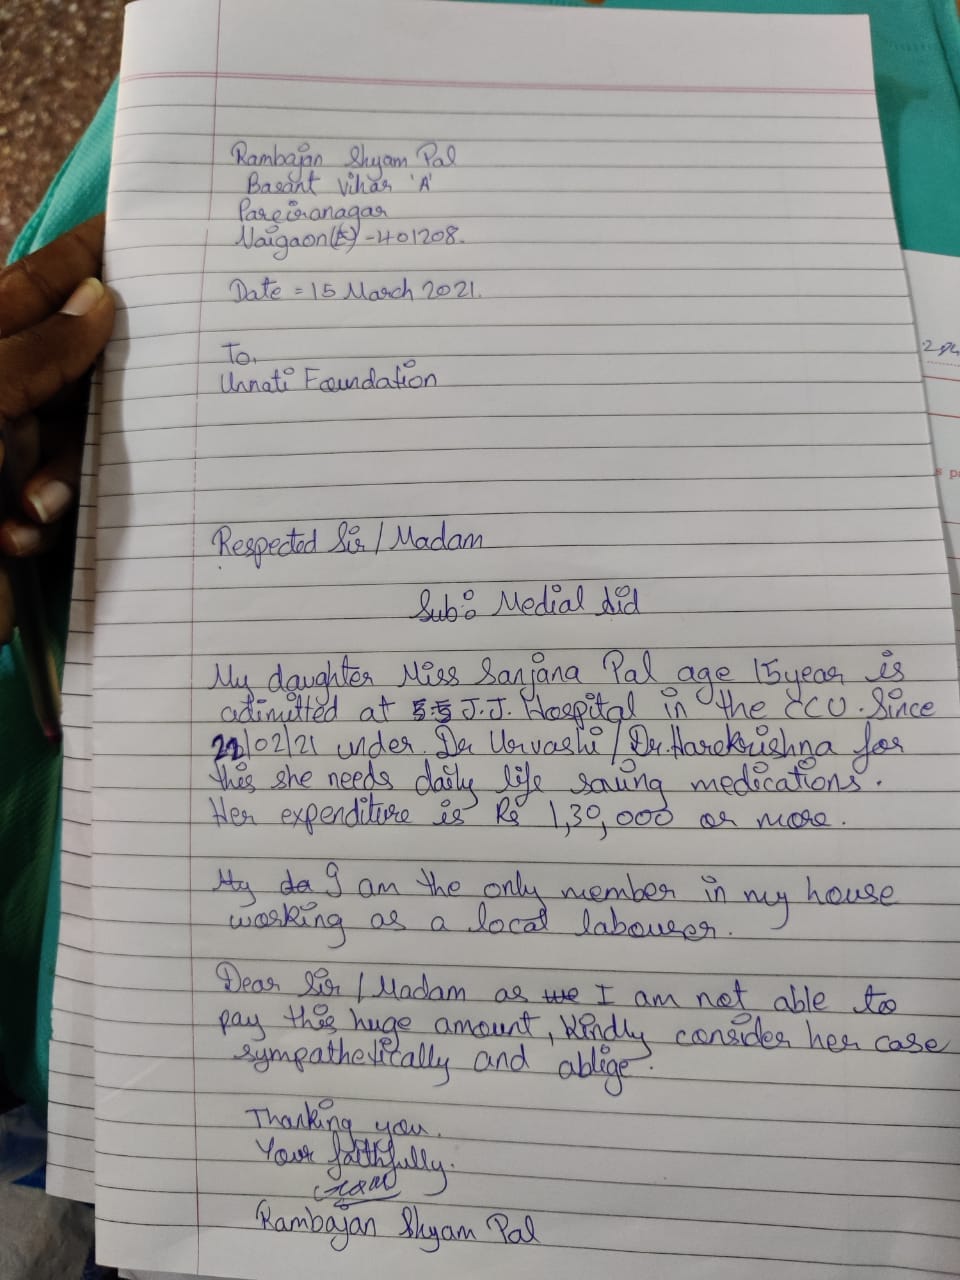 Rambajan Shyam Pal
Basant Vihar 'A'
Pareiranagar
Naigaon(E) -401208.
Date = 15 March 2021.
To,
Unnati Foundation
Respected Sir / Madam
Sub:- Medial Aid
My daughter Miss Sanjana Pal age 15 year is
adimitted at J.J. Hospital in the CCU. Since
22/02/21 under Dr Urvashi / Dr. Harekrishna for
this she needs daily life saving medications.
Her expenditure is Rs 1,30,000 or more.
My da I am the only member in my house
working as a local labourer.
Dear Sir / Madam as we I am not able to
pay this huge amount, kindly consider her case
sympathetically and ablige.
Thanking you.
Your faithfully.
Rambajan Shyam Pal